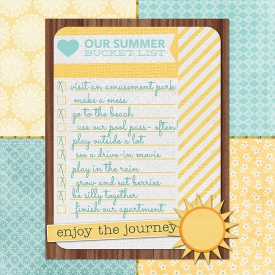 OUR SUMMER
BUCKET LIST
visit an amusement park
make a mess
go to the beach
use our pool pass- often!
play outside a lot
see a drive-in movie
play in the rain
grow and eat berries
be silly together
finish our apartment
enjoy the journey